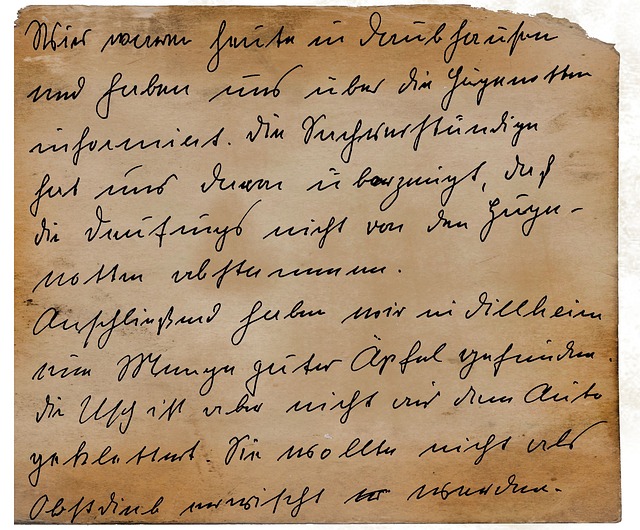 Wir waren heute in Daubhausen
und haben uns über die Hugenotten
informiert. Die Sachverständige
hat uns davon überzeugt, daß
die nicht von den Huge-
notten abstammen.
Anschließend haben wir in Dillheim
eine Menge guter Äpfel gefunden.
die Usch ist aber nicht aus dem Auto
geklettert Sie wollte nicht als
Obstdieb erwischt werden.